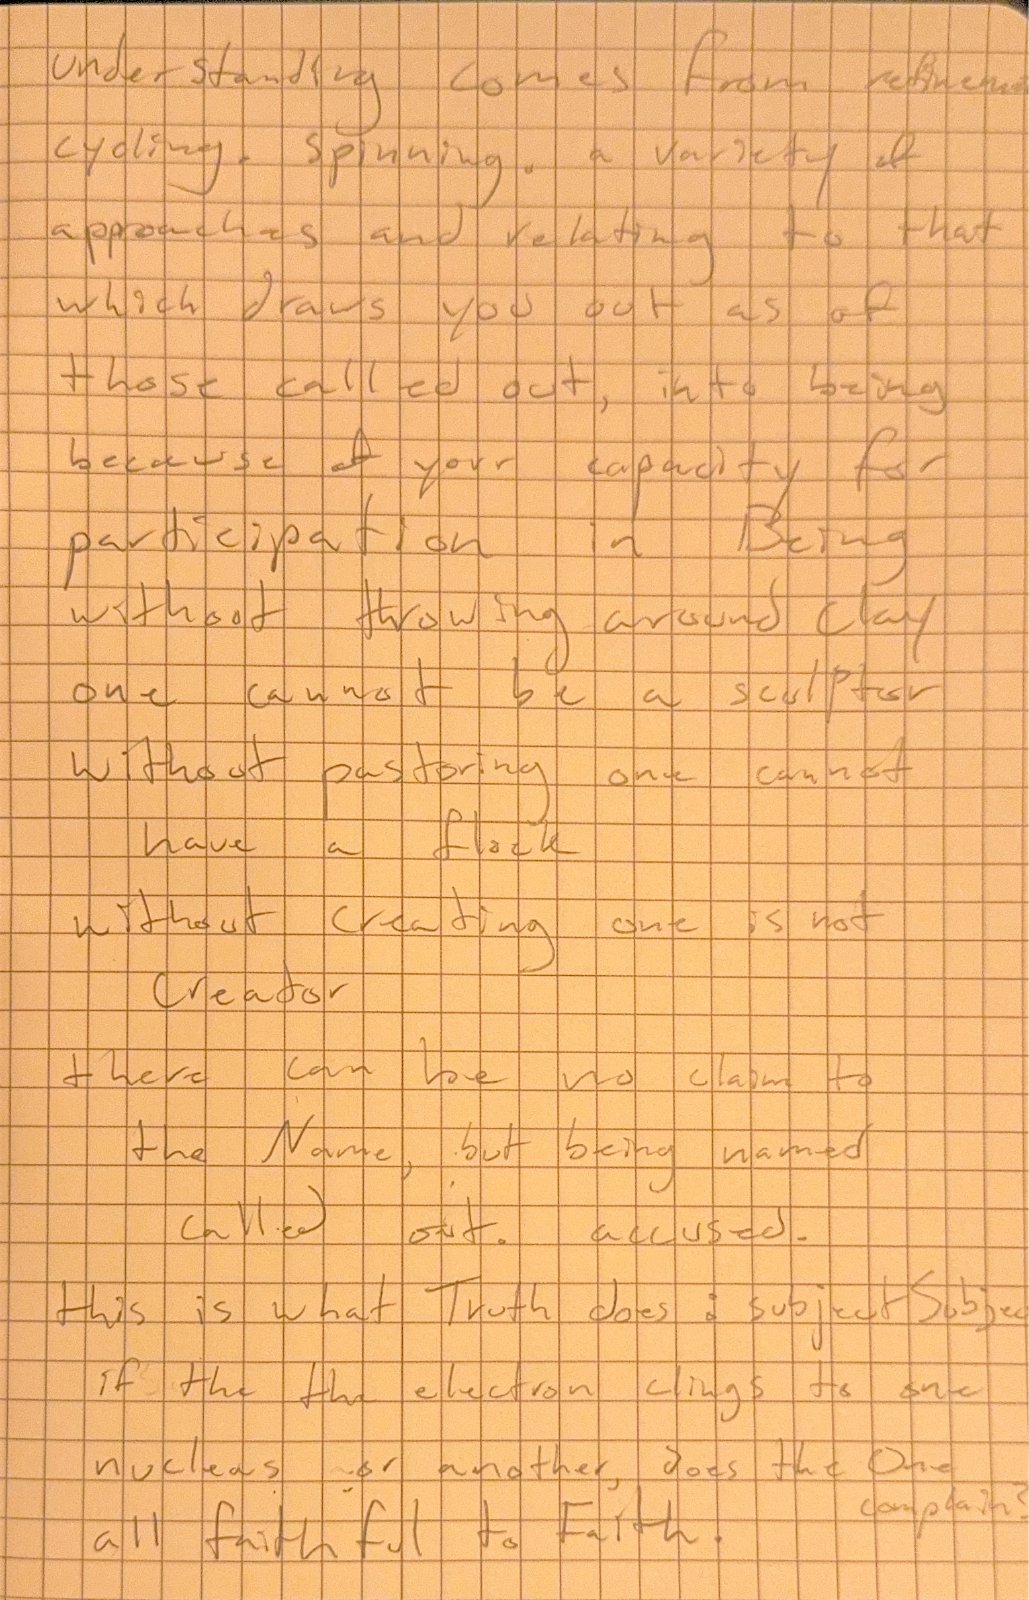 understanding comes from
cycling. spinning. a variety of
approaches and relating to that
which draws you out as of
those called out, into being
because of your capacity for
participation in Being
without throwing around clay
one cannot be a sculptor
without pastoring one cannot
have a flock
without creating one is not
Creator
there can be no claim to
the Name, but being named
called out. accused.
this is what Truth does : subject Subjec
if the the electron clings to one
nucleas or another, does the One
complain?
all faithful to Faith.